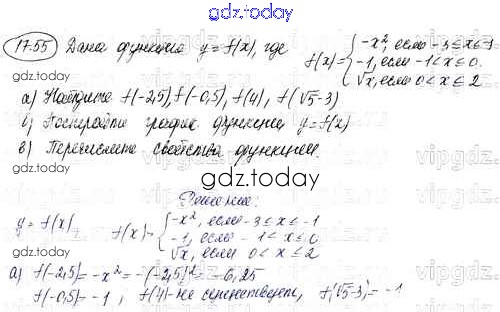 gdz.today
17.55 Дана функция y = f(x), где
f(x)= { -x², если -3 ≤ x ≤ -1
-1, если -1 < x ≤ 0.
√x, если 0 < x ≤ 2
gdz.today
а) Найдите f(-2,5), f(-0,5), f(4), f(√5-3)
б) Постройте график функции y = f(x)
в) Перечислите свойства функции.
gdz.today
Решение:
y = f(x) f(x)= { -x², если -3 ≤ x ≤ -1
-1, если -1 < x ≤ 0
√x, если 0 < x ≤ 2
а) f(-2,5)= -x² = -(-2,5)² = -6,25
f(-0,5)= -1; f(4)- не существует, f(√5-3)= -1
gdz.today